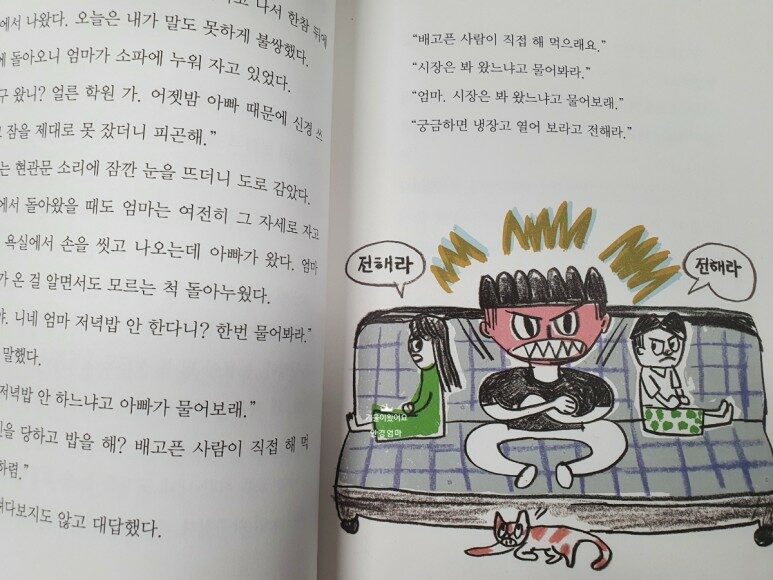 나서 한참 뒤에
에서 나왔다. 오늘은 내가 말도 못하게 불쌍했다.
에 돌아오니 엄마가 소파에 누워 자고 있었다.
구 왔니? 얼른 학원 가. 어젯밤 아빠 때문에 신경 쓰
잠을 제대로 못 잤더니 피곤해.”
는 현관문 소리에 잠깐 눈을 뜨더니 도로 감았다.
에서 돌아왔을 때도 엄마는 여전히 그 자세로 자고
욕실에서 손을 씻고 나오는데 아빠가 왔다. 엄마
가 온 걸 알면서도 모르는 척 돌아누웠다.
니네 엄마 저녁밥 안 한다니? 한번 물어봐라.”
말했다.
저녁밥 안 하느냐고 아빠가 물어보래.”
을 당하고 밥을 해? 배고픈 사람이 직접 해 먹
하렴.”
다보지도 않고 대답했다.
“배고픈 사람이 직접 해 먹으래요.”
“시장은 봐 왔느냐고 물어봐라.”
“엄마. 시장은 봐 왔느냐고 물어보래.”
“궁금하면 냉장고 열어 보라고 전해라.”
전해라
전해라
겨울이왔어요
안경엄마